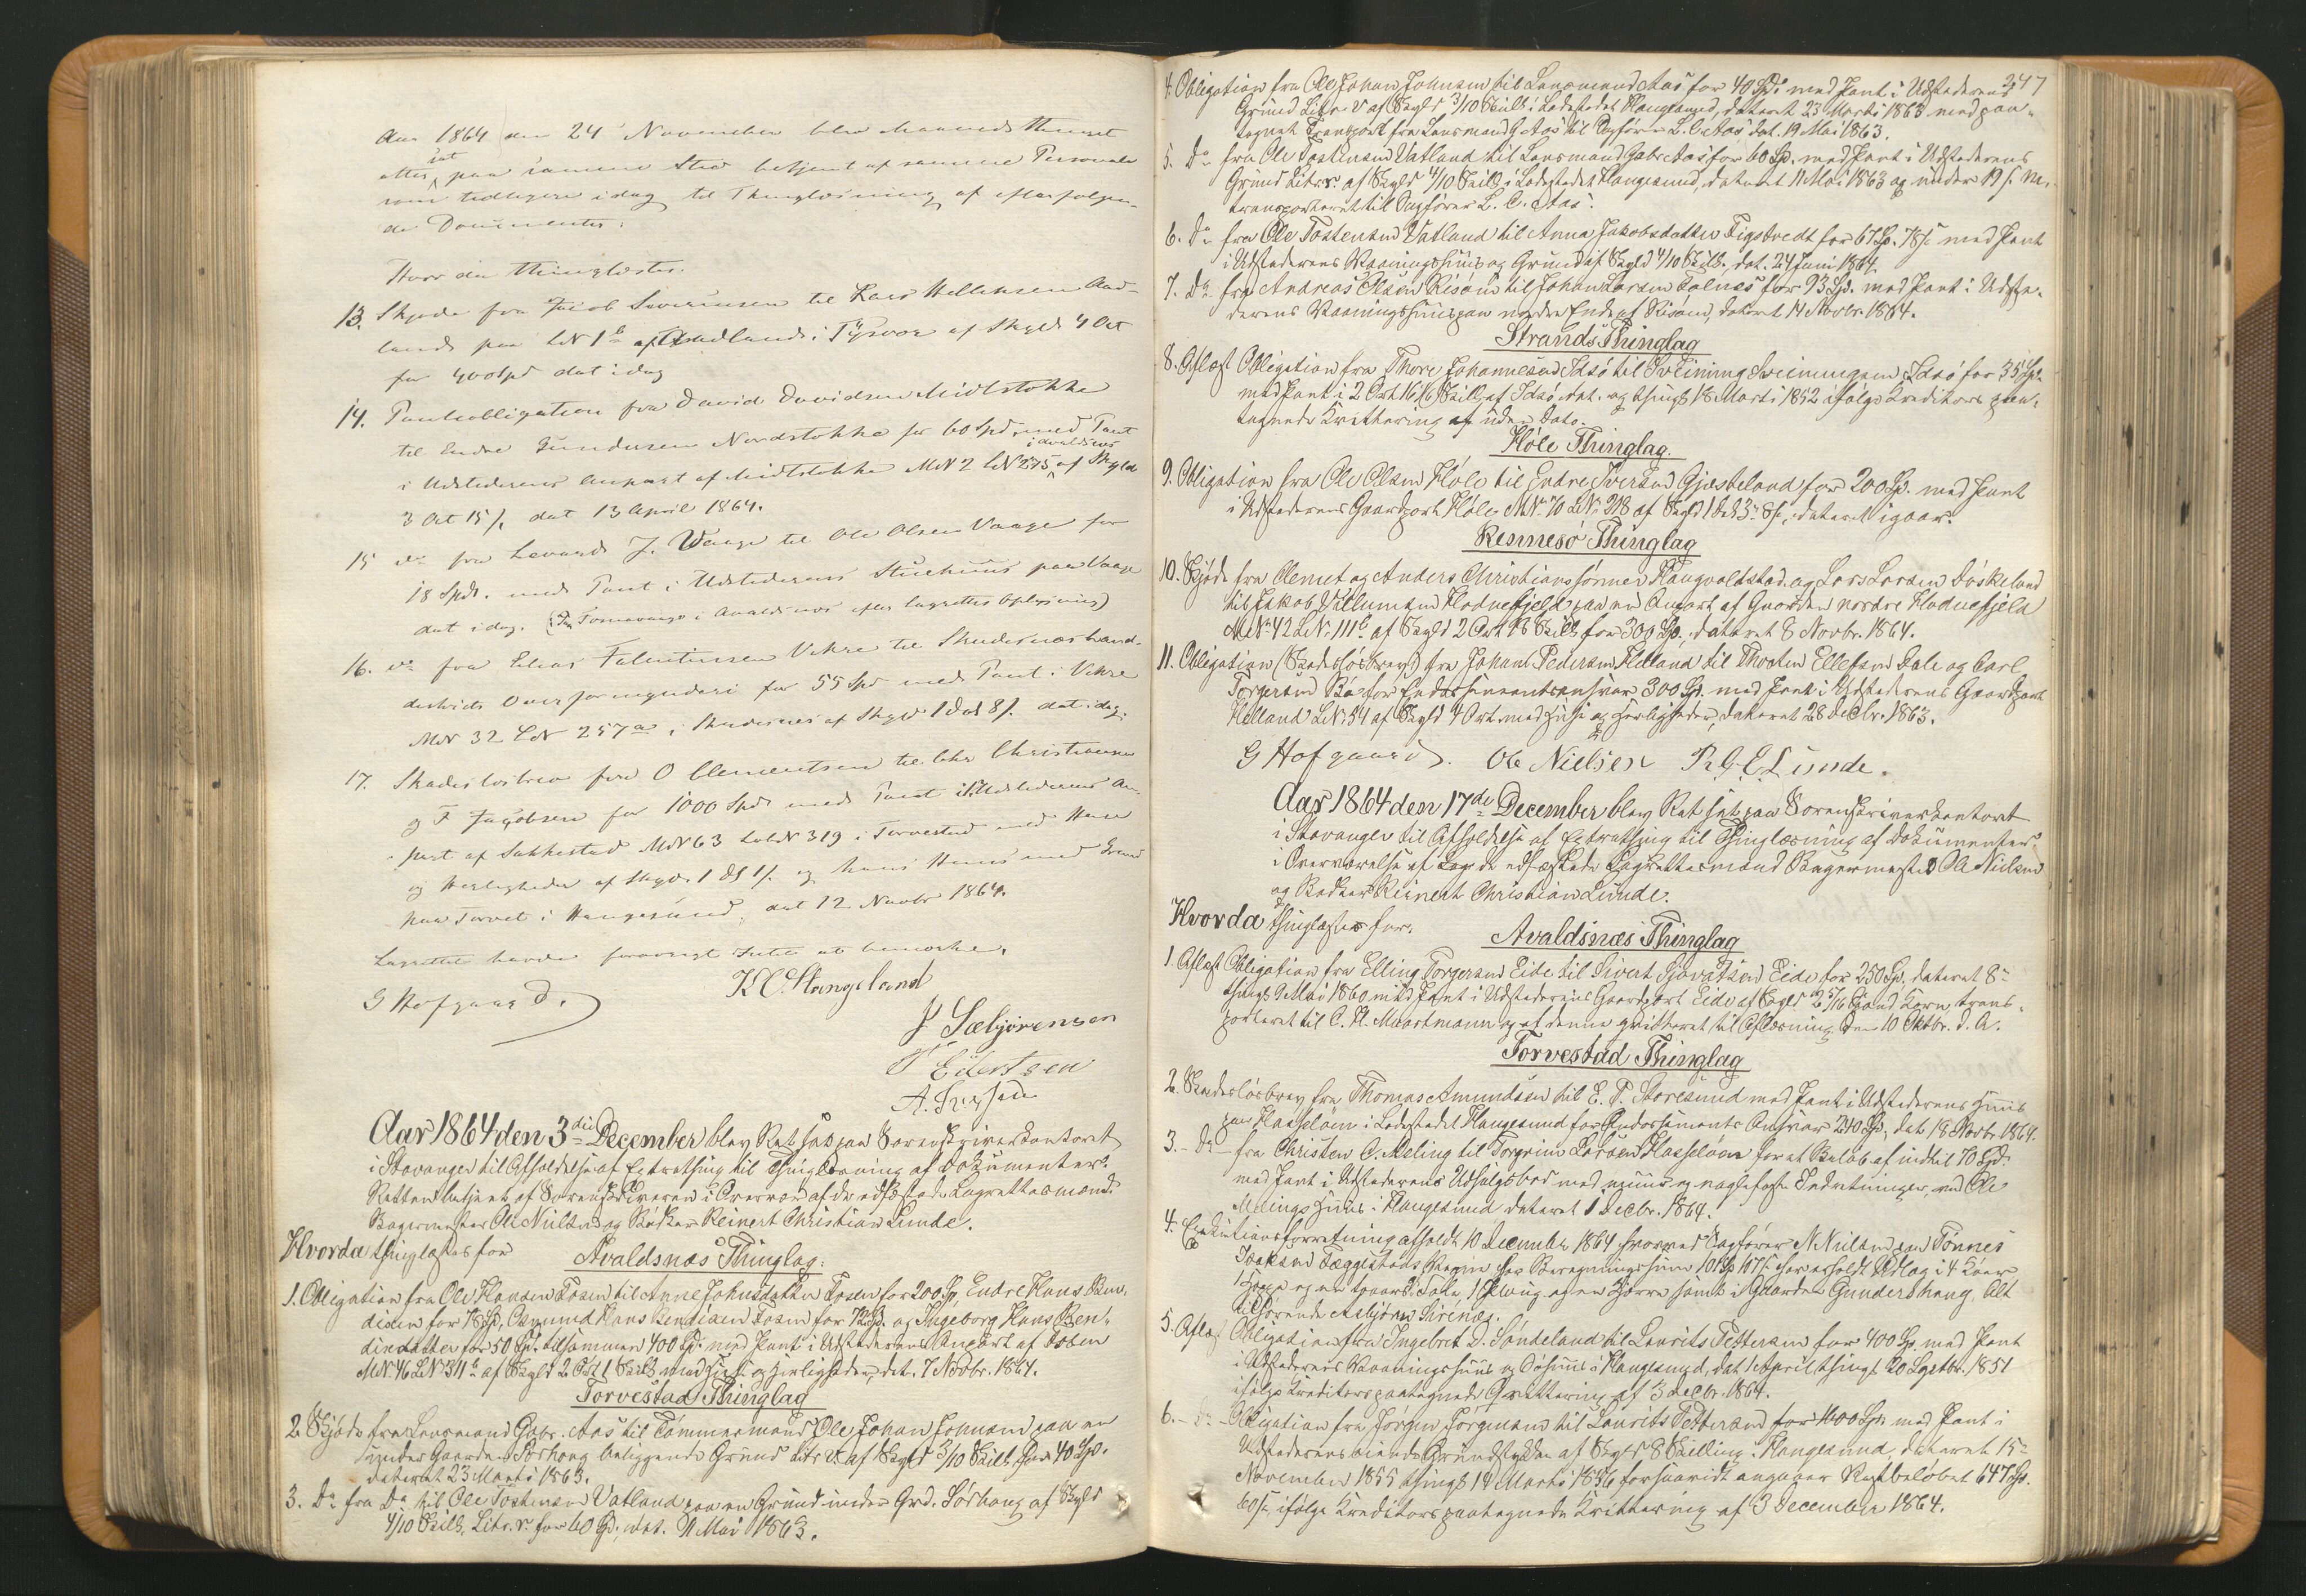 Aar 1864 den 24 November blev Maanedsthinget
atter sat paa samme Sted betjent af samme Personale
som tidligere idag til Thinglæsning af efterfølgen-
de Documenter:
Hvor da thinglæstes.
13. Skjøde fra Jacob Severinsen til Lars Helliksen Aad-
land paa LN 1b af Aadland i Tysvær af Skyld 4 Ort
for 400 Spd dat idag
14. Pantobligation fra David Davidsen Midtstokke
til Endre Gundersen Nordstokke for 60 Spd. med Pant
i Udstederens Anpart af Midtstokke MN 2 LN 275 i Avaldsnæs af Skyld
3 Ort 15 /. dat 13 April 1864.
15 do fra Levard J. Waage til Ole Olsen Vaage for
18 Spd. med Pant i Udstederens Stuehuus paa Vaage
dat idag. ( i Avaldsnæs efter Lagrettes Oplysning)
16. do fra Elias Falentinsen Vikre til Skudesnæs Land-
districts Overformynderi for 55 Spd med Pant i Vikre
MN 32 LN 257a i Skudesnæs af Skyld 1 Dal 8 /. dat idag.
17. Skadesløsbrev fra O Clementsen til Chr Christiansen
og F Jacobsen for 1000 Spd med Pant i Udstederens An-
part af Sakkestad MN 63 LøbN 319 i Torvestad med Huse
og Herligheder af Skyld 1 D 1 /. og hans Huus med Grund
paa Torvet i Haugesund, dat 12 Novbr 1864.
Lagrettet havde forøvrigt Intet at bemærke.
G Hofgaard.
K C. Stangeland
J Sæbjørensen
Eilertsen
A.
Aar 1864 den 3die December blev Ret sat paa Sorenskriverkontoret
i Stavanger til Afholdelse af Extrathing til Thinglæsning af Dokumenter.
Retten betjent af Sorenskriveren i Overvær af de edfæstede Lagrettesmænd
Bagermester Ole Nielsen og Bødker Reinert Christian Lunde.
Hvorda thinglæstes for
Avaldsnæs Thinglag.
1. Obligation fra Ole Hansen Fosen til Anne Johnsdatter Fosen for 200 Sp, Endre Hans Ben-
dixen for 78 Sp, Osmund Hans Bendixen Fosen for 72 Sp. og Ingeborg Hans Ben-
dixdatter for 50 Sp. tilsammen 400 Sp. med Pant i Udstederens Anpart af Fosen
MN. 46 LN 311 b af Skyld 2 Ort 1 Skill. med Huse og Herligheder, dat. 7 Novbr. 1864.
Torvestad Thinglag
2 Skjøde fra Lensmand Gabr. Aas til Tømmermand Ole Johan Johnsen paa en
under Gaarden Sørhaug beliggende Grund Litr. v. af Skyld 3/10 Skill, for 40 Sp.
dateret 23 Marts 1863.
3. Do fra Do til Ole Tostensen Vatland paa en Grund under Grd. Sørhaug af Skyld
4/10 Skill, Litr. r. for 60 Sp. dat. 11 Mai 1863.
247
4. Obligation fra Ole Johan Johnsen til Lensmand Aas for 40 Sp. med Pant i Udstederens
Grund Litr. v af Skyld 3/10 Skill. i Ladestedet Haugesund, dateret 23 Marts 1863 med paa-
tegnet Transport fra Lensmand G Aas til Sagfører L. C. Aas dat. 19 Mai 1863.
5. Do fra Ole Tostensen Vatland til Lensmand Gabr. Aas for 60 Sp. med Pant i Udstederens
Grund Litr. r. af Skyld 4/10 Skill. i Ladestedet Haugesund, dateret 11 Mai 1863 og under 19 s. M.
transporteret til Sagfører L. C. Aas.
6. Do fra Ole Tostensen Vatland til Anna Jakobsdatter Tigstvedt for 67 Sp. 78 s. med Pant
i Udstederens Vaaningshuus og Grund af Skyld 4/10 Skill. dat. 24 Juni 1864.
7. Do fra Andreas Olsen Risøen til Johan Larsen Falnes for 93 Sp. med Pant i Udste-
derens Vaaningshuus paa nordre Ende af Risøen, dateret 14 Novbr. 1864.
Strands Thinglag
8. Aflæst Obligation fra Thore Johannesen Idsø til Sveinung Sveinungsen Idsø for 35 Sp.
med Pant i 2 Ort 16 Skill. af Idsø dat. og thingl. 18 Marts 1852 ifølge Kreditors paa-
tegnede Kvittering af uden Dato.
Høle Thinglag.
9. Obligation fra Ole Olsen Høle til Endre Iversen Gjæsteland for 200 Sp. med Pant
i Udstederens Gaardpart Høle MN. 70 LN. 218 af Skyld 1 Dl. 3 8 s. dateret igaar.
Rennesø Thinglag
10. Skjøde fra Clemet og Anders Christianssønner Haugvaldstad og Lars Larsen Døskeland
til Jakob Villumsen Hodnefjeld paa en Anpart af Gaarden nordre Hodnefjeld
MN. 42 LN. 111 b. af Skyld 2 Ort 18 Skill for 300 Sp., dateret 8 Novbr. 1864.
11. Obligation (Skadesløsbrev) fra Johans Pedersen Helland til Thosten Ellefsen Dale og Carl
Torgersen Bø for Endossementsansvar 300 Sp. med Pant i Udstederens Gaardpart
Helland LN. 54 af Skyld 4 Ort med Huse og Herligheder, dateret 28 Decbr. 1863.
G Hofgaard. Ole Nielsen R. C. Lunde.
Aar 1864 den 17de December blev Ret sat paa Sorenskriverkontoret
i Stavanger til Afholdelse af Extrathing til Thinglæsning af Dokumenter
i Overværelse af de edfæstede Lagrettesmænd Bagermester Ole Nielsen
og Bødker Reinert Christian Lunde.
Hvorda thinglæstes for.
Avaldsnæs Thinglag
1. Aflæst Obligation fra Elling Torgersen Eide til Sivert Sjovatsen Eide for 250 Sp. dateret 8
thingl. 9 Mai 1860 med Pant i Udstederens Gaardpart Eide af Skyld 2 5/16 Spand Korn, trans-
porteret til C. H. Maartmann og af denne qvitteret til Aflæsning den 10 Oktbr. d. A.
Torvestad Thinglag
2. Skadesløsbrev fra Thomas Amundsen til E. T. Storesund med Pant i Udstederens Huus
paa Hasseløen i Ladestedet Haugesund for Endossements Ansvar 240 Sp, dat. 18 Novbr. 1864.
3. Do fra Christen C. Meling til Torgrim Larsen Hasseløen for et Beløb af indtil 70 Sp.
med Pant i Udstederens Udsalgsbod med muur og naglefaste Indretninger, ved Ole
Melings Huus i Haugesund dateret 1 Decbr. 1864.
4. Exekutionsforretning afholdt 10 December 1864 hvorved Sagfører N. Nielsen paa Tønnes
Isaksen Tæggestads Vegne for Beregningssum 101 Sp 107 s. har erholdt Udlæg i 4 Køer
1 Hoppe og en toaars Fole, 1 Ploug og en Kjærre samt i Gaarden Gundershaug. Alt
tilhørende Asbjørn Sirenæs.
5. Aflæst Obligation fra Ingebret D. Søndeland til Laurits Pettersen for 400 Sp. med Pant
i Udstederens Vaaningshuus og Søhuus i Haugesund, dat. 1 April thingl. 20 Septbr. 1851
ifølge Kreditors paategnede Qvittering af 3 Decbr. 1864.
6. Do Obligation fra Jørgen Jørgensen til Laurits Pettersen for 1600 Sp. med Pant i
Udstederens eiende Grundstykke af Skyld 8 Skilling i Haugesund, dateret 15
November 1855 thingl. 14 Marts 1856 forsaavidt angaaer Restbeløbet 647 Sp.
60 s. ifølge Kreditors paategnede Kvittering af 3 December 1864.